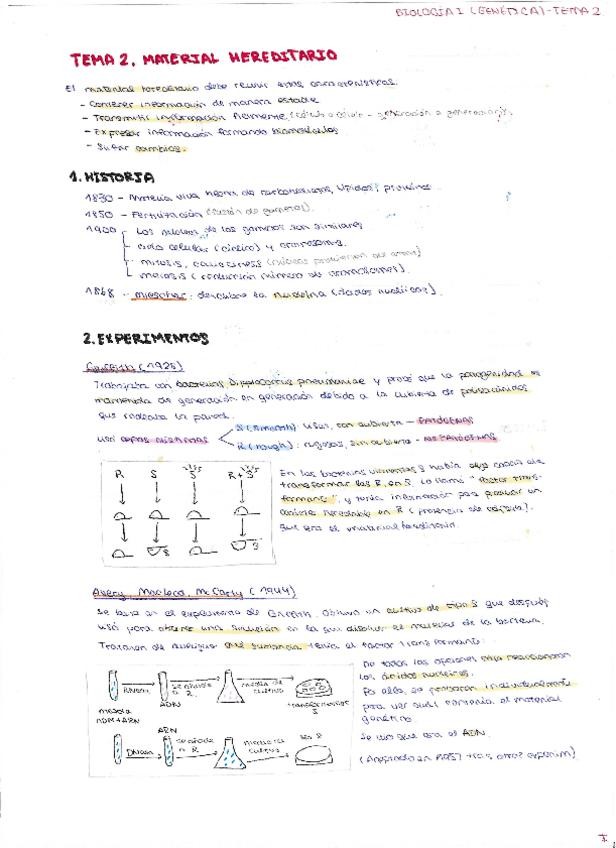 BIOLOGÍA I (GENÉTICA) - TEMA 2
TEMA 2. MATERIAL HEREDITARIO
El material hereditario debe reunir estas características:
- Contener información de manera estable
- Transmitir información fielmente (célula a célula - generación a generación).
- Expresar información formando biomoléculas
- Sufrir cambios.
1. HISTORIA
1830 - Materia viva hecha de carbohidratos, lípidos y proteínas
1850 - Fertilización (fusión de gametos).
1900 Los núcleos de los gametos son similares
ciclo celular (cinético) y cromosomas.
mitosis,
meiosis (reducción número de cromosomas).
1868 - Miescher: descubre la nucleína (ácidos nucleicos).
2. EXPERIMENTOS
Griffith (1928)
Trabajaba con bacterias Diplococcus pneumoniae y probó que la patogenidad es
mantenida de generación en generación debido a la cubierta de polisacáridos
que rodeaba la pared.
usó cepas distintas
S (smooth): lisas, con cubierta - PATÓGENAS
R (rough): rugosas, sin cubierta - NO PATÓGENAS
R S S R + S
En las bacterias S había algo capaz de
transformar las R en S. Lo llamó "factor trans-
formante", y tenía información para producir un
cambio heredable en R (presencia de cápsula).
que era el material hereditario.
Avery, MacLeod, McCarty (1944)
Se basó en el experimento de Griffith. Obtuvo un cultivo de tipo S que después
usó para obtener una solución en la que disolver el material de la bacteria.
Trataron de averiguar qué sustancia tenía el factor transformante.
RNasa
se añade a R.
medio de cultivo
transformadas S
ADN
mezcla
ADN + ARN
ARN
DNasa
se añade a R
medio cultivo
las R
No todas las opciones
los ácidos nucleicos.
Por ello, se probaron individualmente
para ver cuál contenía el material
genético
Se vio que era el ADN.
(Aceptado en 1957 tras otros experim)
1